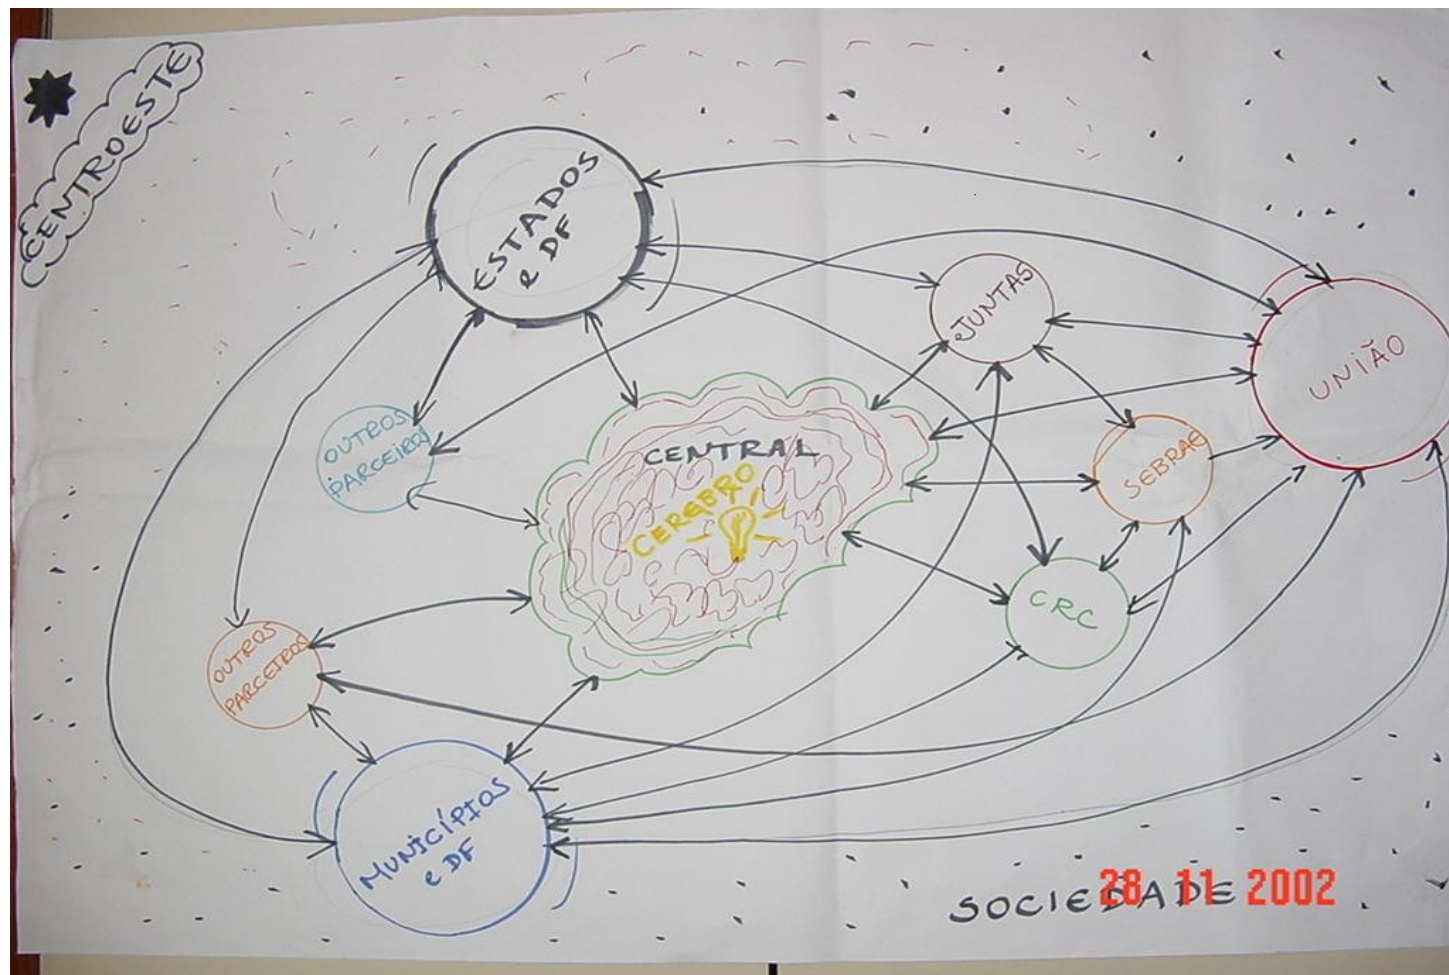 CENTROESTE
ESTADOS
e DF
JUNTAS
UNIÃO
OUTROS
PARCEIROS
CENTRAL
CEREBRO
SEBRAE
CRC
OUTROS
PARCEIROS
MUNICÍPIOS
e DF
SOCIEDADE
28 11 2002